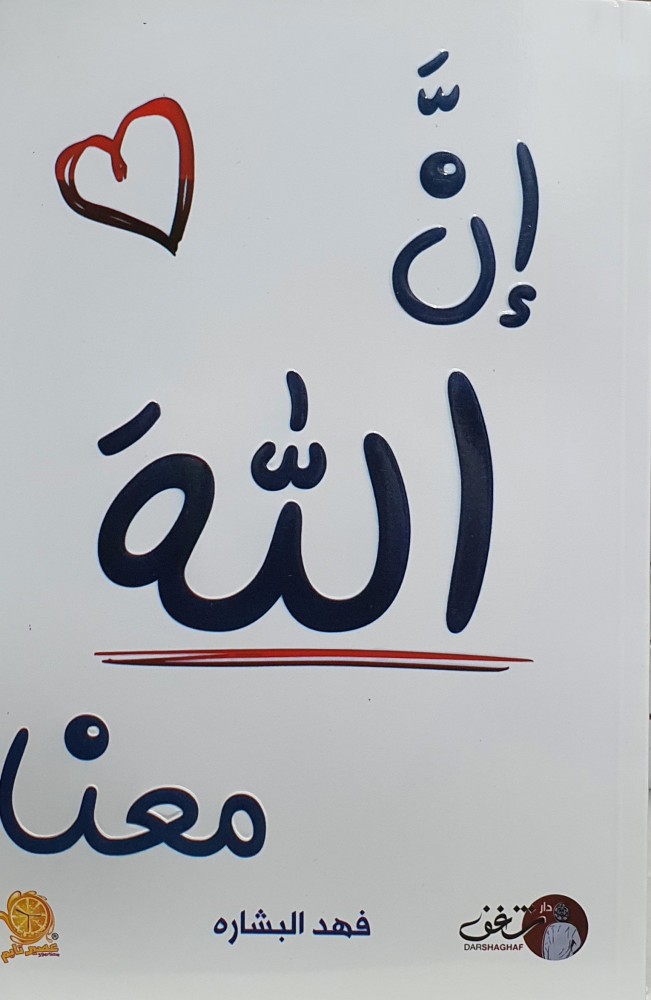 إنَّ
اللّٰهَ
معنا
فهد البشاره
دار شغف
DARSHAGHAF
عصير تايم